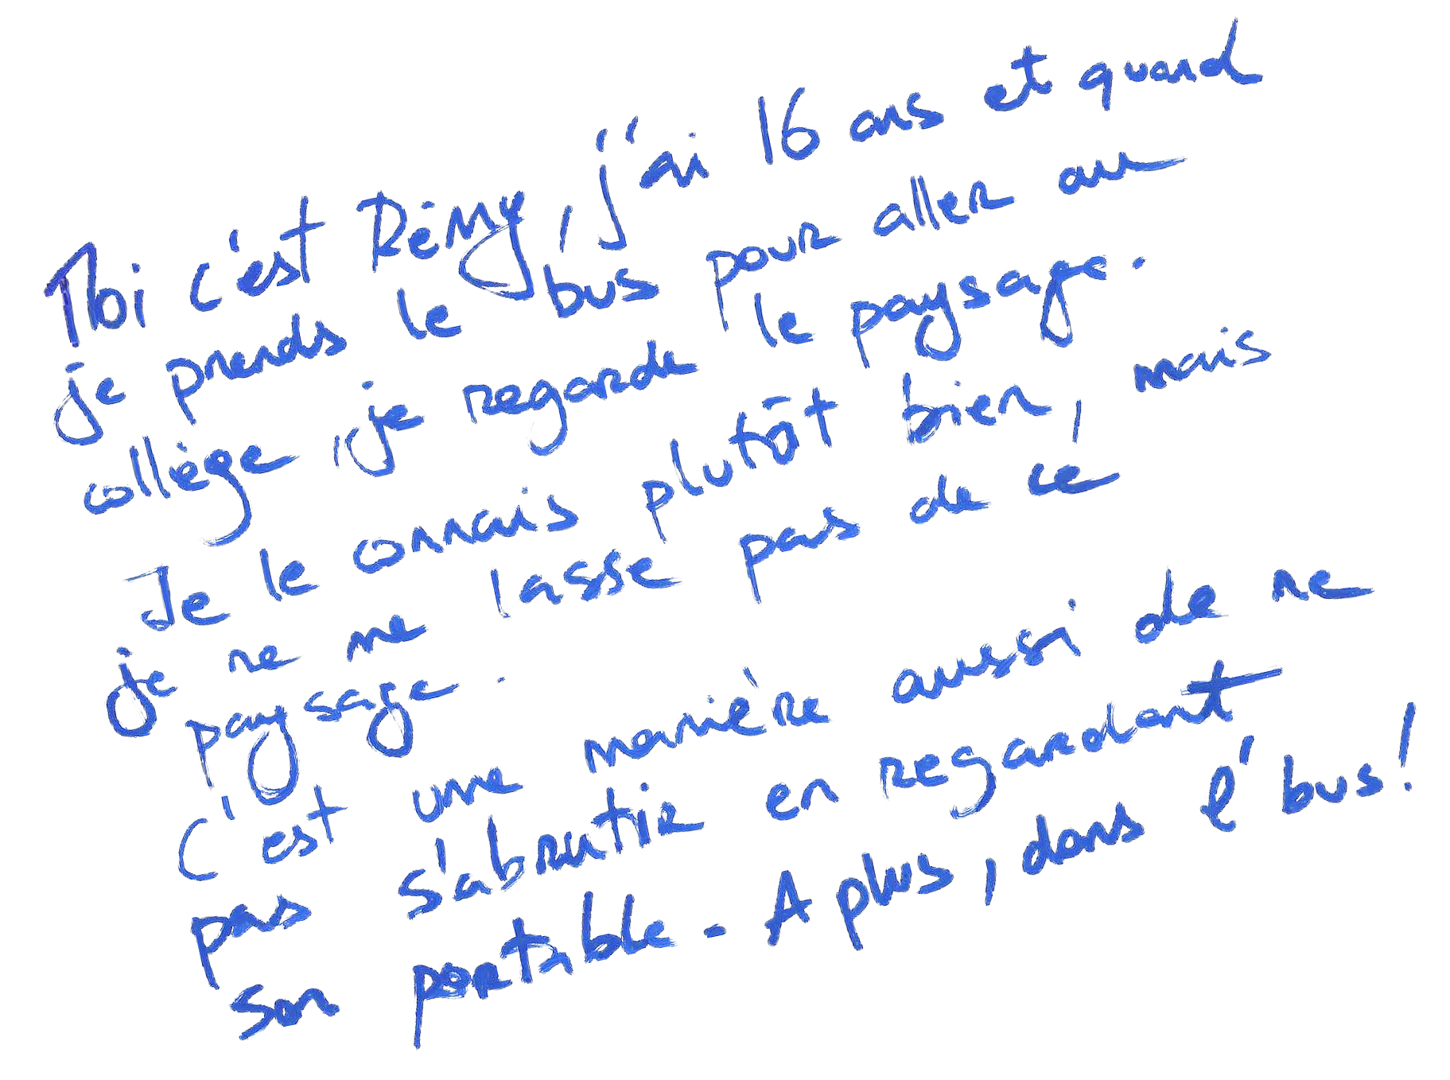 Moi c'est Rémy, j'ai 16 ans et quand
je prends le bus pour aller au
collège, je regarde le paysage.
Je le connais plutôt bien, mais
je ne me lasse pas de ce
paysage.
C'est une manière aussi de ne
pas s'abrutir en regardant
son portable - A plus, dans l'bus!